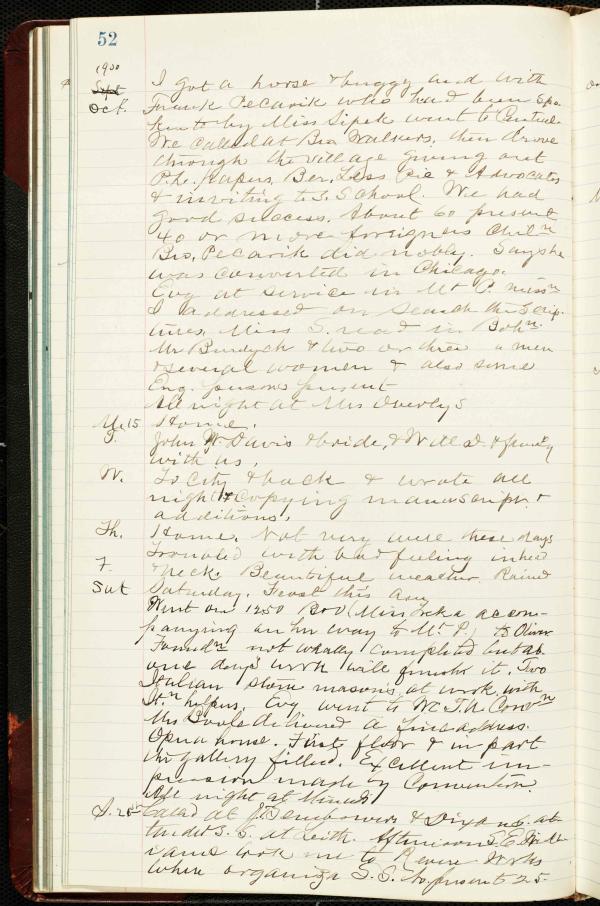 52
1900
Oct. I got a horse & buggy and with
Frank Pecarik who had been spo
ken to by Miss Sipek went to Central.
We called at Bro Walkers, then drove
through the village giving out
Papers, Ber. Less & Advocates
& inviting to S. School. We had
good success. About 60 present
40 or more foreigners
Bro. Pecarik did nobly. Says he
was converted in Chicago.
Evg at service in Mt P.
I addressed on Search the Scrip-
tures, Miss S. read in Bohn.
Mr Burdych & two or three men
& several women & also some
Eng. persons present
All night at Mrs Overlys
M. 15 Home.
T. John W Davis & bride, &
with us.
W. To City & back & wrote all
night copying manuscript &
additions.
Th. Home. Not very well these days
Troubled with bad feeling in head
F. & neck. Beautiful weather. Rained
Sat Saturday. Frost this day
Went on 1250 (Miss accom-
panying on her way to Mt P.) to Oliver
not wholly completed but
one day's work will finish it. Two
Italian stone masons at work with
helpers. Evg went to
Mrs delivered a fine address.
Opera house. First floor & in part
the gallery filled. Excellent im-
pression made by Convention
All night at
S. Called at & at-
tended S. S. at Leith. Afternoon S. E.
came took me to Works
where organize S. S. No. present 25.